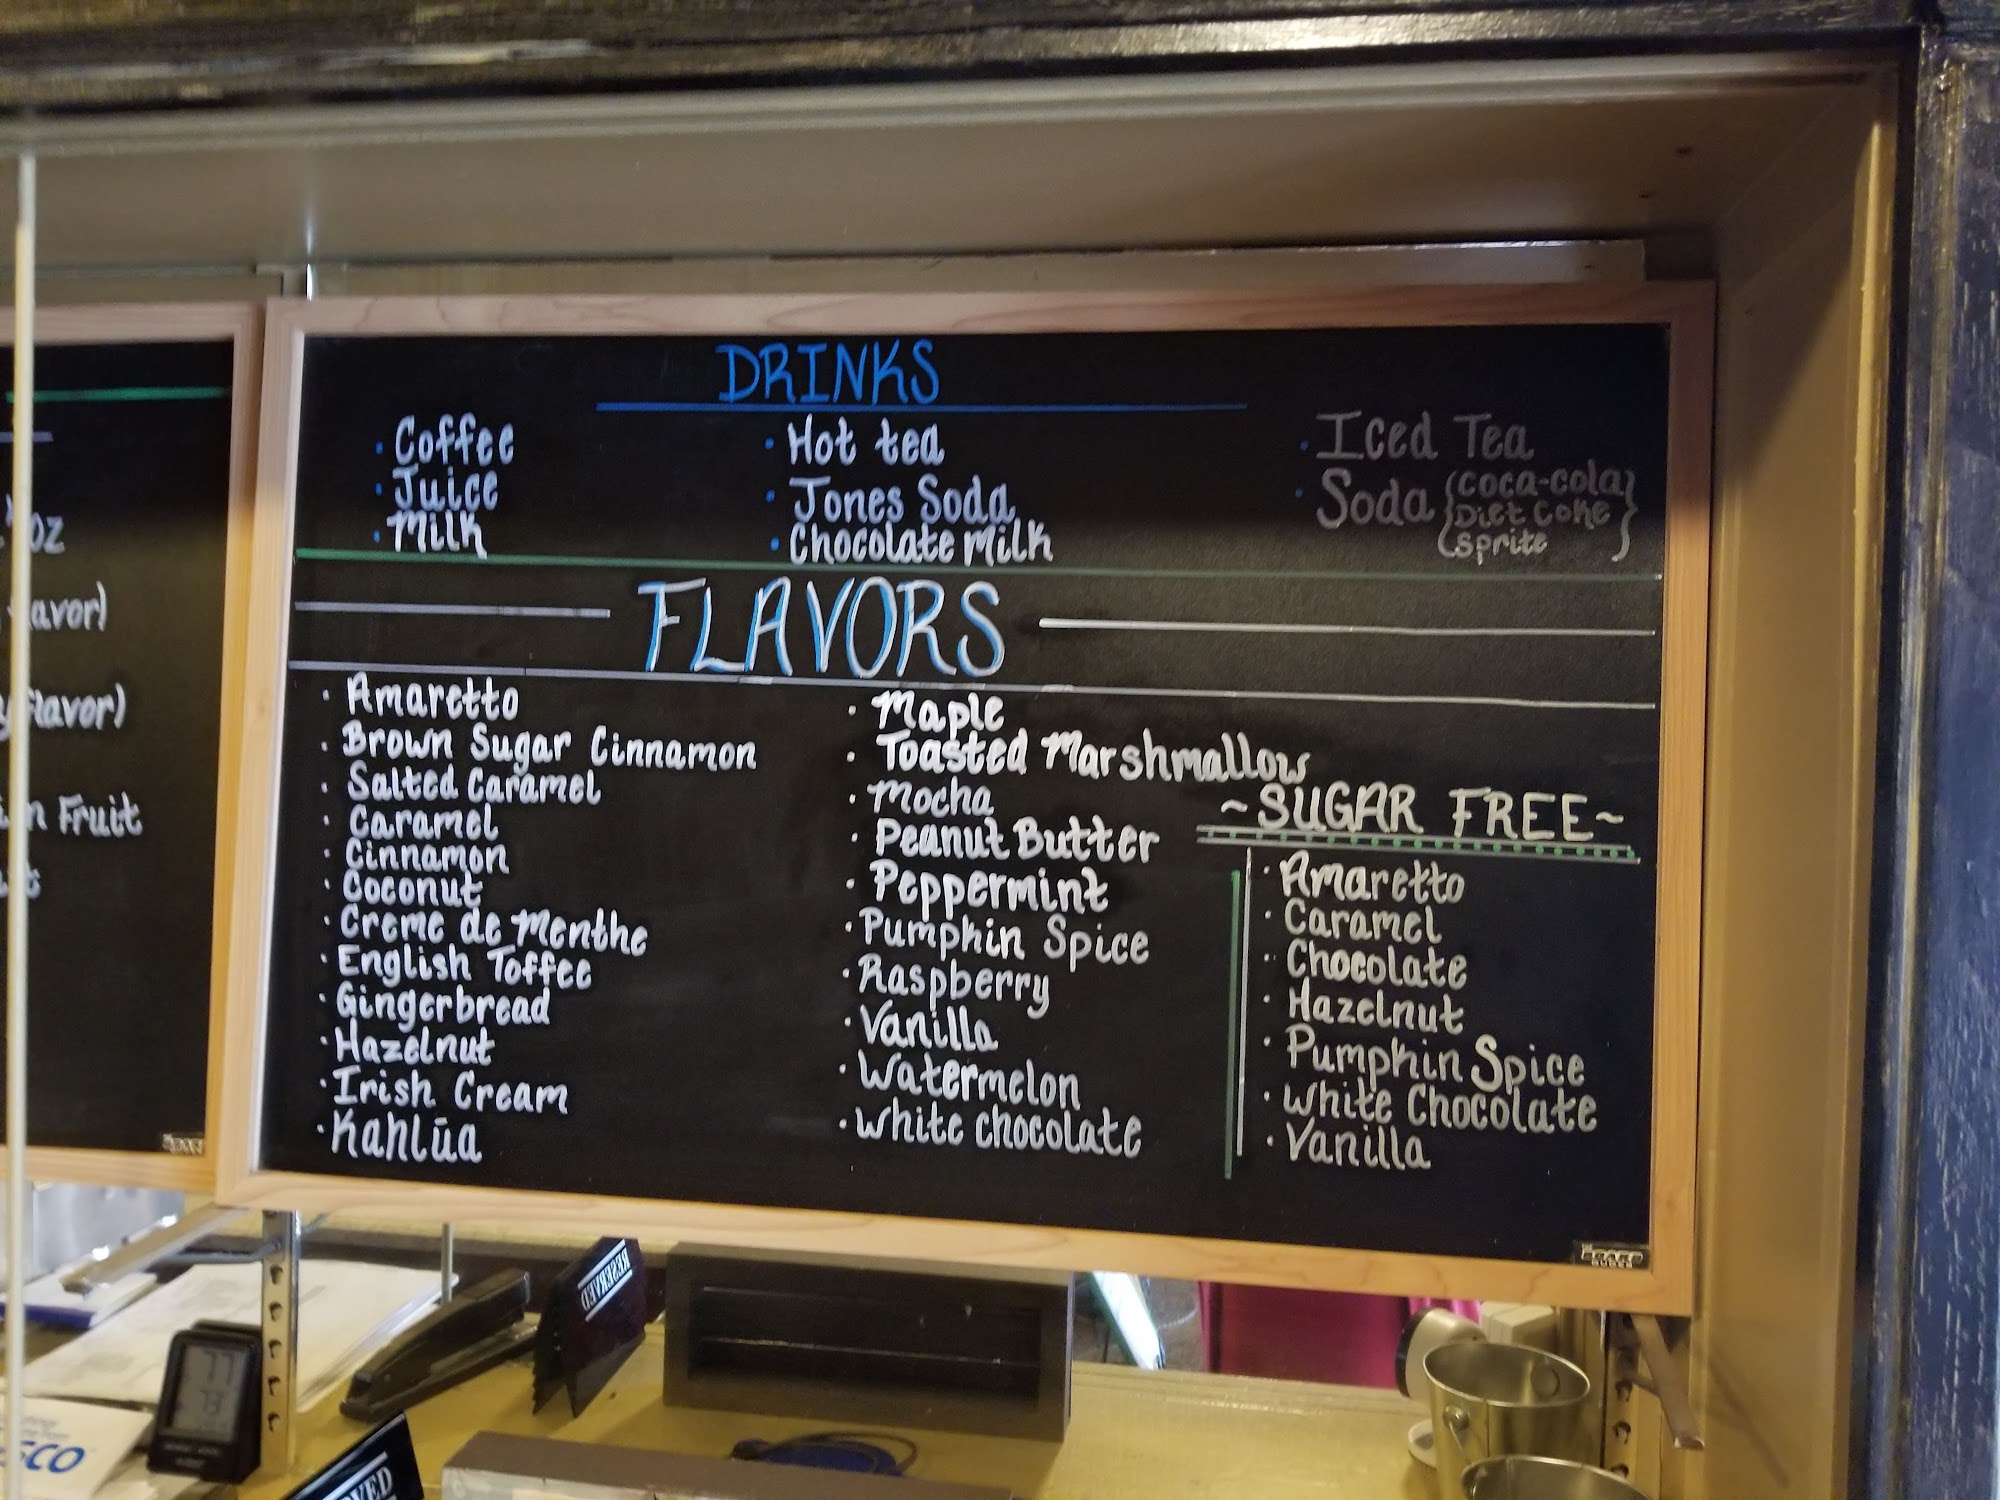 DRINKS
Coffee
Juice
Milk
Hot tea
Jones Soda
Chocolate Milk
Iced Tea
Soda {Coca-cola
Diet Coke
Sprite}
FLAVORS
Amaretto
Brown Sugar Cinnamon
Salted Caramel
Caramel
Cinnamon
Coconut
Creme de Menthe
English Toffee
Gingerbread
Hazelnut
Irish Cream
Kahlūa
Maple
Toasted Marshmallow
Mocha
Peanut Butter
Peppermint
Pumpkin Spice
Raspberry
Vanilla
Watermelon
White Chocolate
~SUGAR FREE~
Amaretto
Caramel
Chocolate
Hazelnut
Pumpkin Spice
White Chocolate
Vanilla
oz
flavor)
flavor)
Fruit
RESERVED